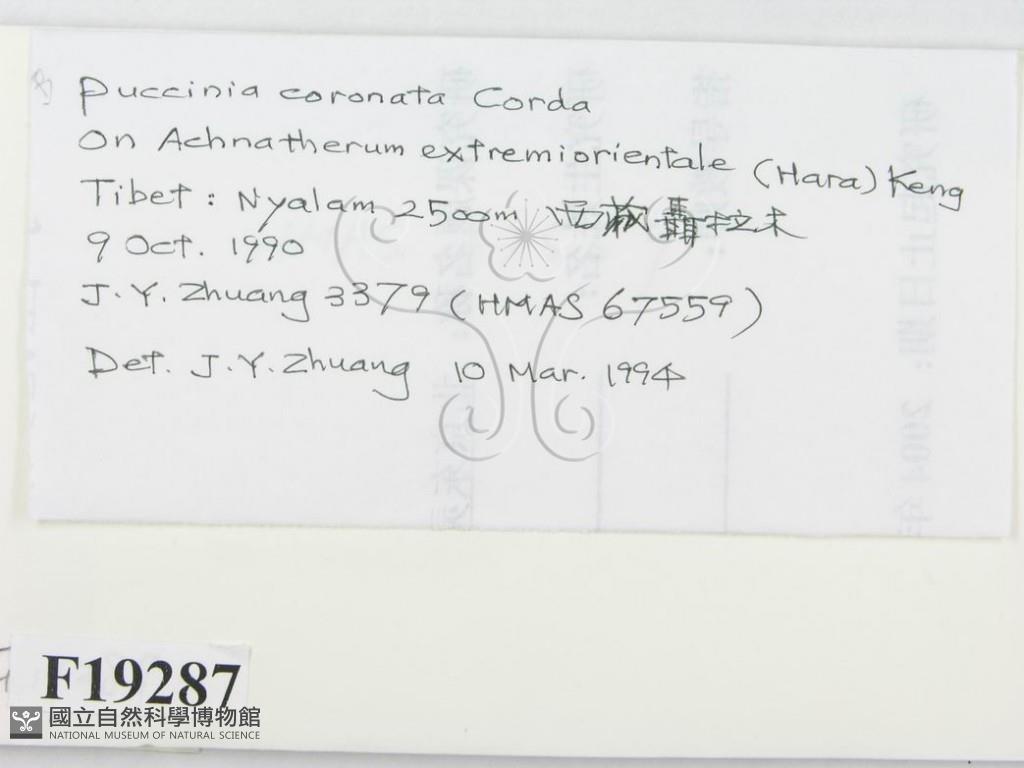 Puccinia coronata Corda
On Achnatherum extremiorientale (Hara) Keng
Tibet: Nyalam 2500m 西藏聶拉木
9 Oct. 1990
J. Y. Zhuang 3379 (HMAS 67559)
Det. J. Y. Zhuang 10 Mar. 1994
F19287
國立自然科學博物館
NATIONAL MUSEUM OF NATURAL SCIENCE